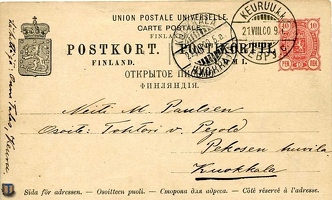 UNION POSTALE UNIVERSELLE
CARTE POSTALE
FINLANDE
POSTKORT. POSTKORTTI.
FINLAND. SUOMI.
ОТКРЫТОЕ ПИСЬМО
ФИНЛЯНДІЯ.
KEURUU
21 VIII.00 9
10 10
PEN. PEN.
Neiti M. Paulsen
Osoite: Tohtori v. Pezold
Pekosen huvila
Kuokkala
Sida för adressen. — Osoitteen puoli. — Сторона для адреса. — Côté réservé à l'adresse.